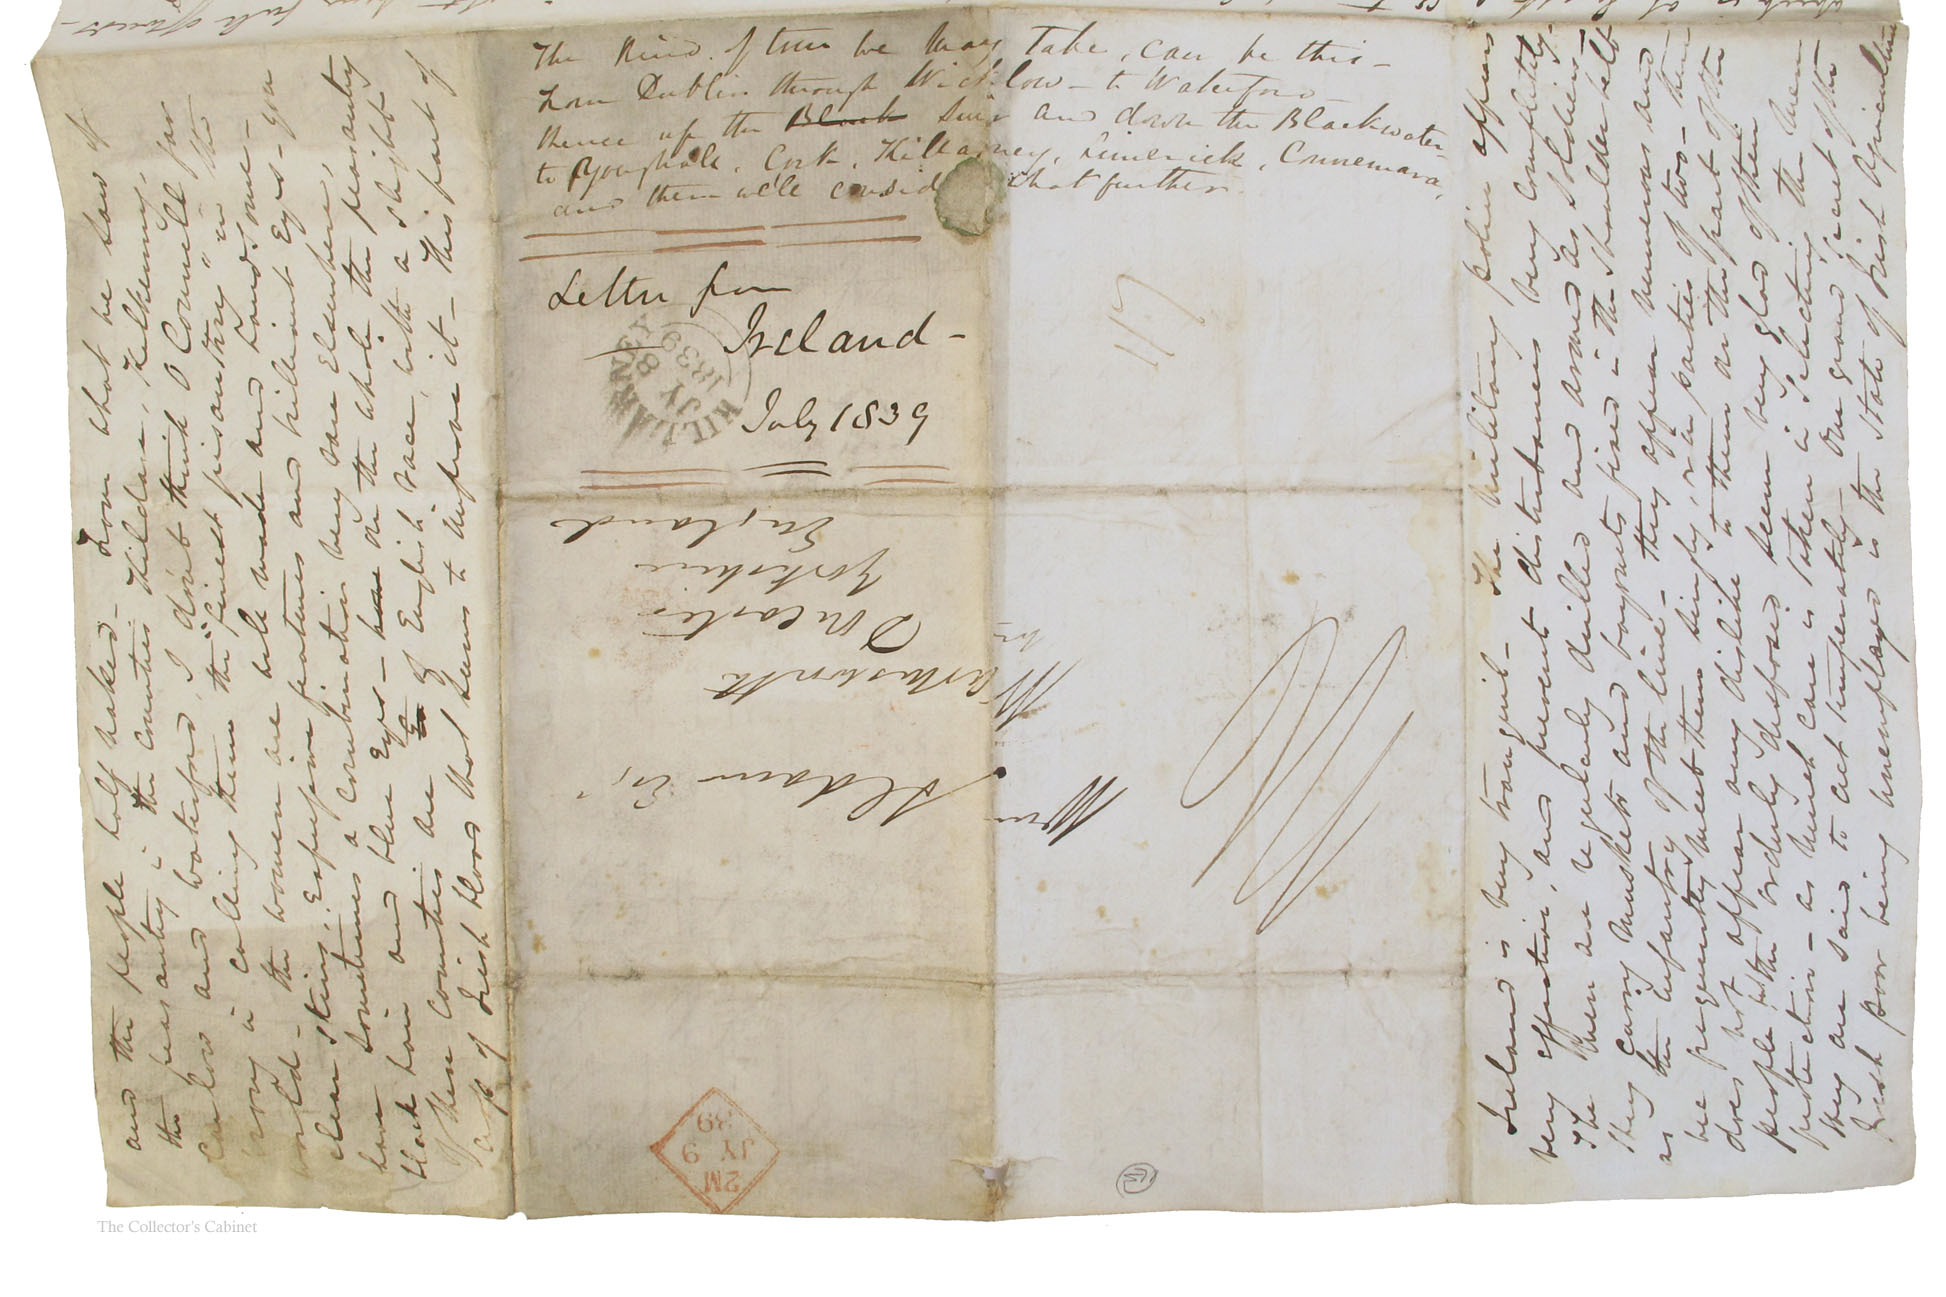 The kind of tour we may take, can be this -
from Dublin through Wicklow - to Waterford -
thence up the Black Suir and down the Blackwater
to Youghall, Cork, Killarney, Limerick, Connemara,
and then we'll consider what further.
Letter from
Ireland -
July 1839
KILLARNEY
JY 8
1839
Wm Aldam Esqr
Warmsworth
nr Doncaster
Yorkshire
England
2M
JY 9
39
and the people half naked - From what we saw of
the peasantry in the Counties Kildare, Kilkenny,
Carlow and Waterford, I don't think O Connell far
wrong in calling them the "finest pisantry" in the
world - the women are well made and handsome -
clean skins, expressive features and brilliant Eyes - you
have sometimes a combination very rare elsewhere,
black hair and blue Eyes - on the whole the peasantry
of these Counties are of English race, with a slight
of Irish blood that seems to improve it - This part of
Ireland is very tranquil - The military police appears
very effective, and prevent disturbances very completely -
The men are regularly drilled and armed as soldiers -
they carry muskets and bayonets fixed in the shoulder belt
as the infantry of the line - they appear numerous and
we frequently meet them singly, or in parties of two - there
does not appear any dislike to them on the part of the
people, the orderly disposed seem very glad of their
protection - as much care is taken in selecting the men
they are said to act temperately - One grand secret of the
Irish poor being unemployed is the state of Irish Agriculture
The Collector's Cabinet